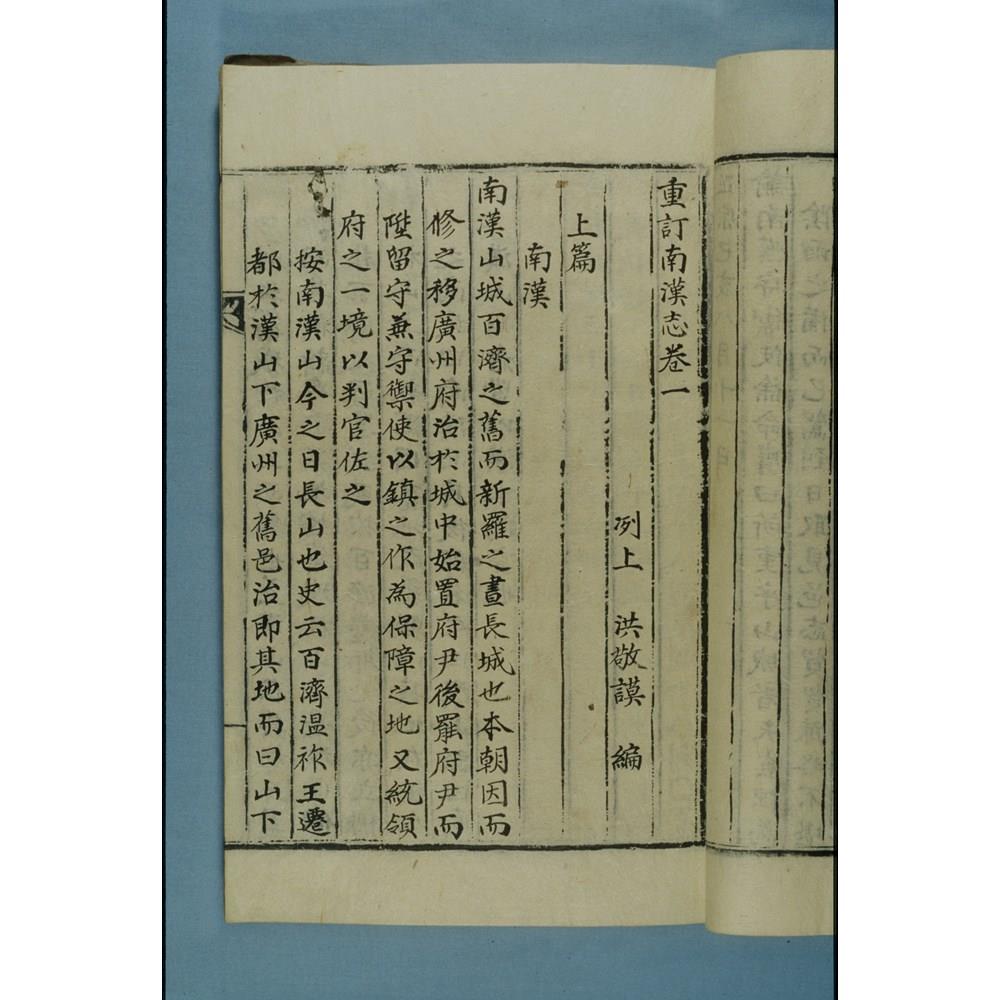 重訂南漢志卷一
洌上 洪敬謨 編
上篇
南漢
南漢山城百濟之舊而新羅之晝長城也本朝因而
修之移廣州府治於城中始置府尹後罷府尹而
陞留守兼守禦使以鎮之作為保障之地又統領
府之一境以判官佐之
按南漢山今之日長山也史云百濟温祚王遷
都於漢山下廣州之舊邑治即其地而曰山下